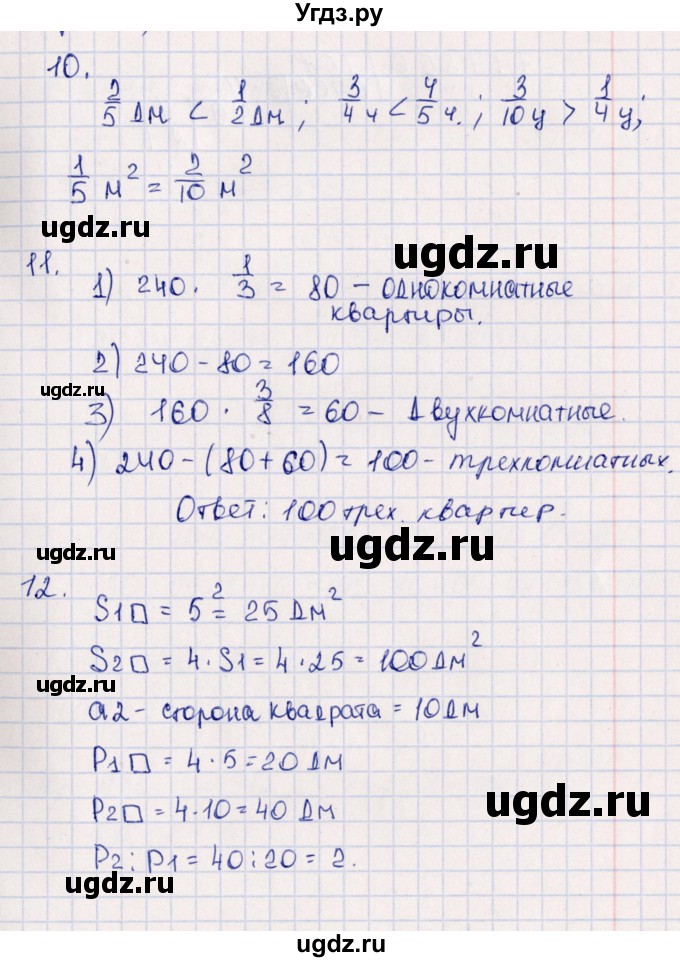 Угдз.ру
10.
2/5 дм < 1/2 дм; 3/4 ч < 4/5 ч.; 3/10 ц > 1/4 ц;
1/5 м² = 2/10 м²
ugdz.ru
ugdz.ru
11.
1) 240 · 1/3 = 80 – однокомнатные
квартиры.
2) 240 – 80 = 160
ugdz.ru
3) 160 · 3/8 = 60 – двухкомнатные.
4) 240 – (80 + 60) = 100 – трехкомнатных.
Ответ: 100 трех. квартир.
ugdz.ru
ugdz.ru
12.
S1□ = 5² = 25 дм²
S2□ = 4 · S1 = 4 · 25 = 100 дм²
ugdz.ru
a2 – сторона квадрата = 10 дм
P1□ = 4 · 5 = 20 дм
ugdz.ru
P2□ = 4 · 10 = 40 дм
P2 : P1 = 40 : 20 = 2.
ugdz.ru
ugdz.ru